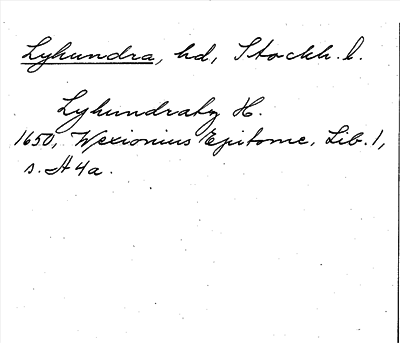 Lyhundra, hd, Stockh. l.
Lyhundratz H.
1650, Wexionius Epitome, Lib. 1,
s. A4a.